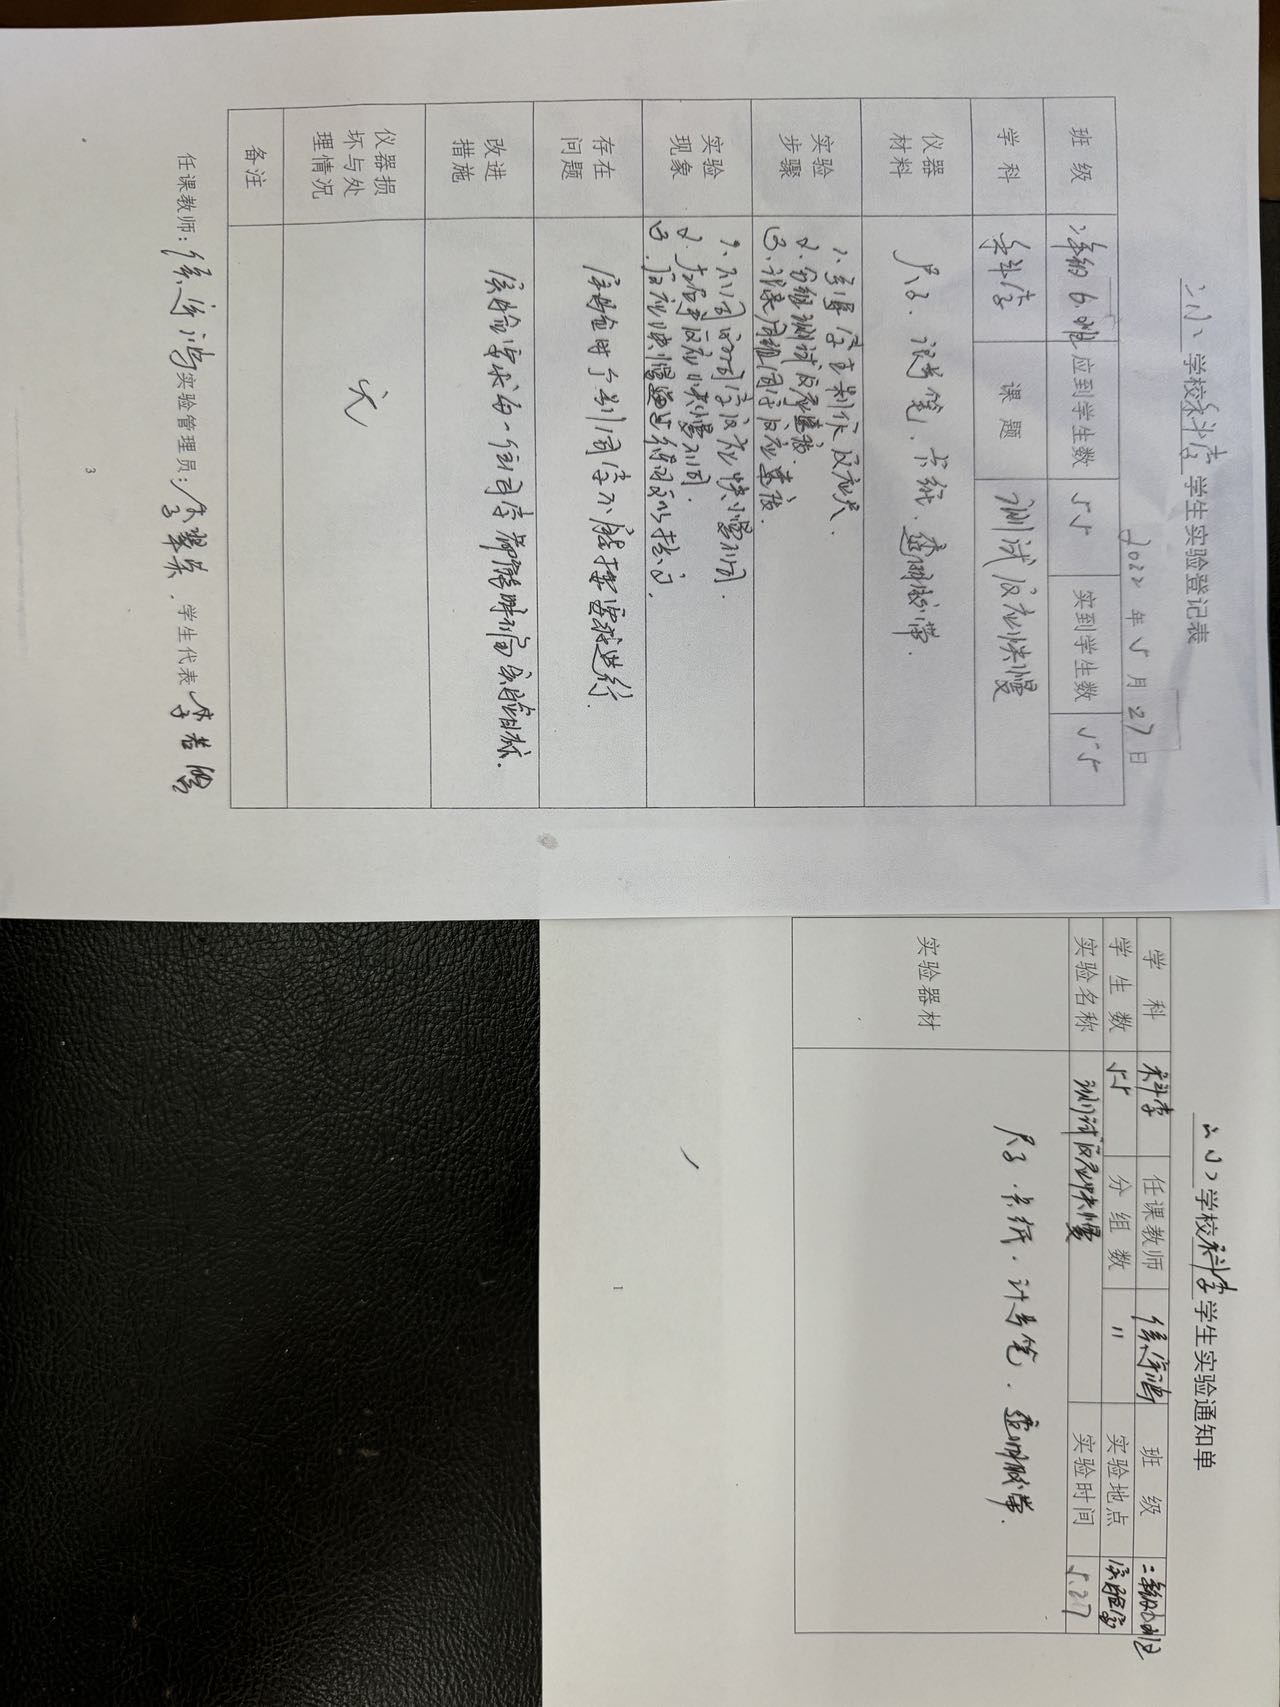 二小 学校科学学生实验登记表
2022 年 5 月 27 日
班 级 二年级6班 应到学生数 55 实到学生数 55
学 科 科学 课 题 测试反应快慢
仪器
材料
尺子、记号笔、卡纸、透明胶带.
实验
步骤
1、引导学生制作反应尺.
2、分组测试反应速度.
3、记录同组同学反应速度.
实验
现象
1、不同的同学反应快慢不同.
2、左右手反应快慢不同.
3、反应快慢通过练习可以提高.
存在
问题
实验时个别同学不能按要求进行.
改进
措施
实验要求每一位同学都能明确实验目标.
仪器损
坏与处
理情况
无
备注
任课教师： 实验管理员： 学生代表
3
二小 学校科学学生实验通知单
学 科 科学 任课教师 班 级 二年级6班
学 生 数 55 分 组 数 11 实验地点 实验室
实验名称 测试反应快慢 实验时间 5.27
实验器材
尺子、卡纸、记号笔、透明胶带.
1